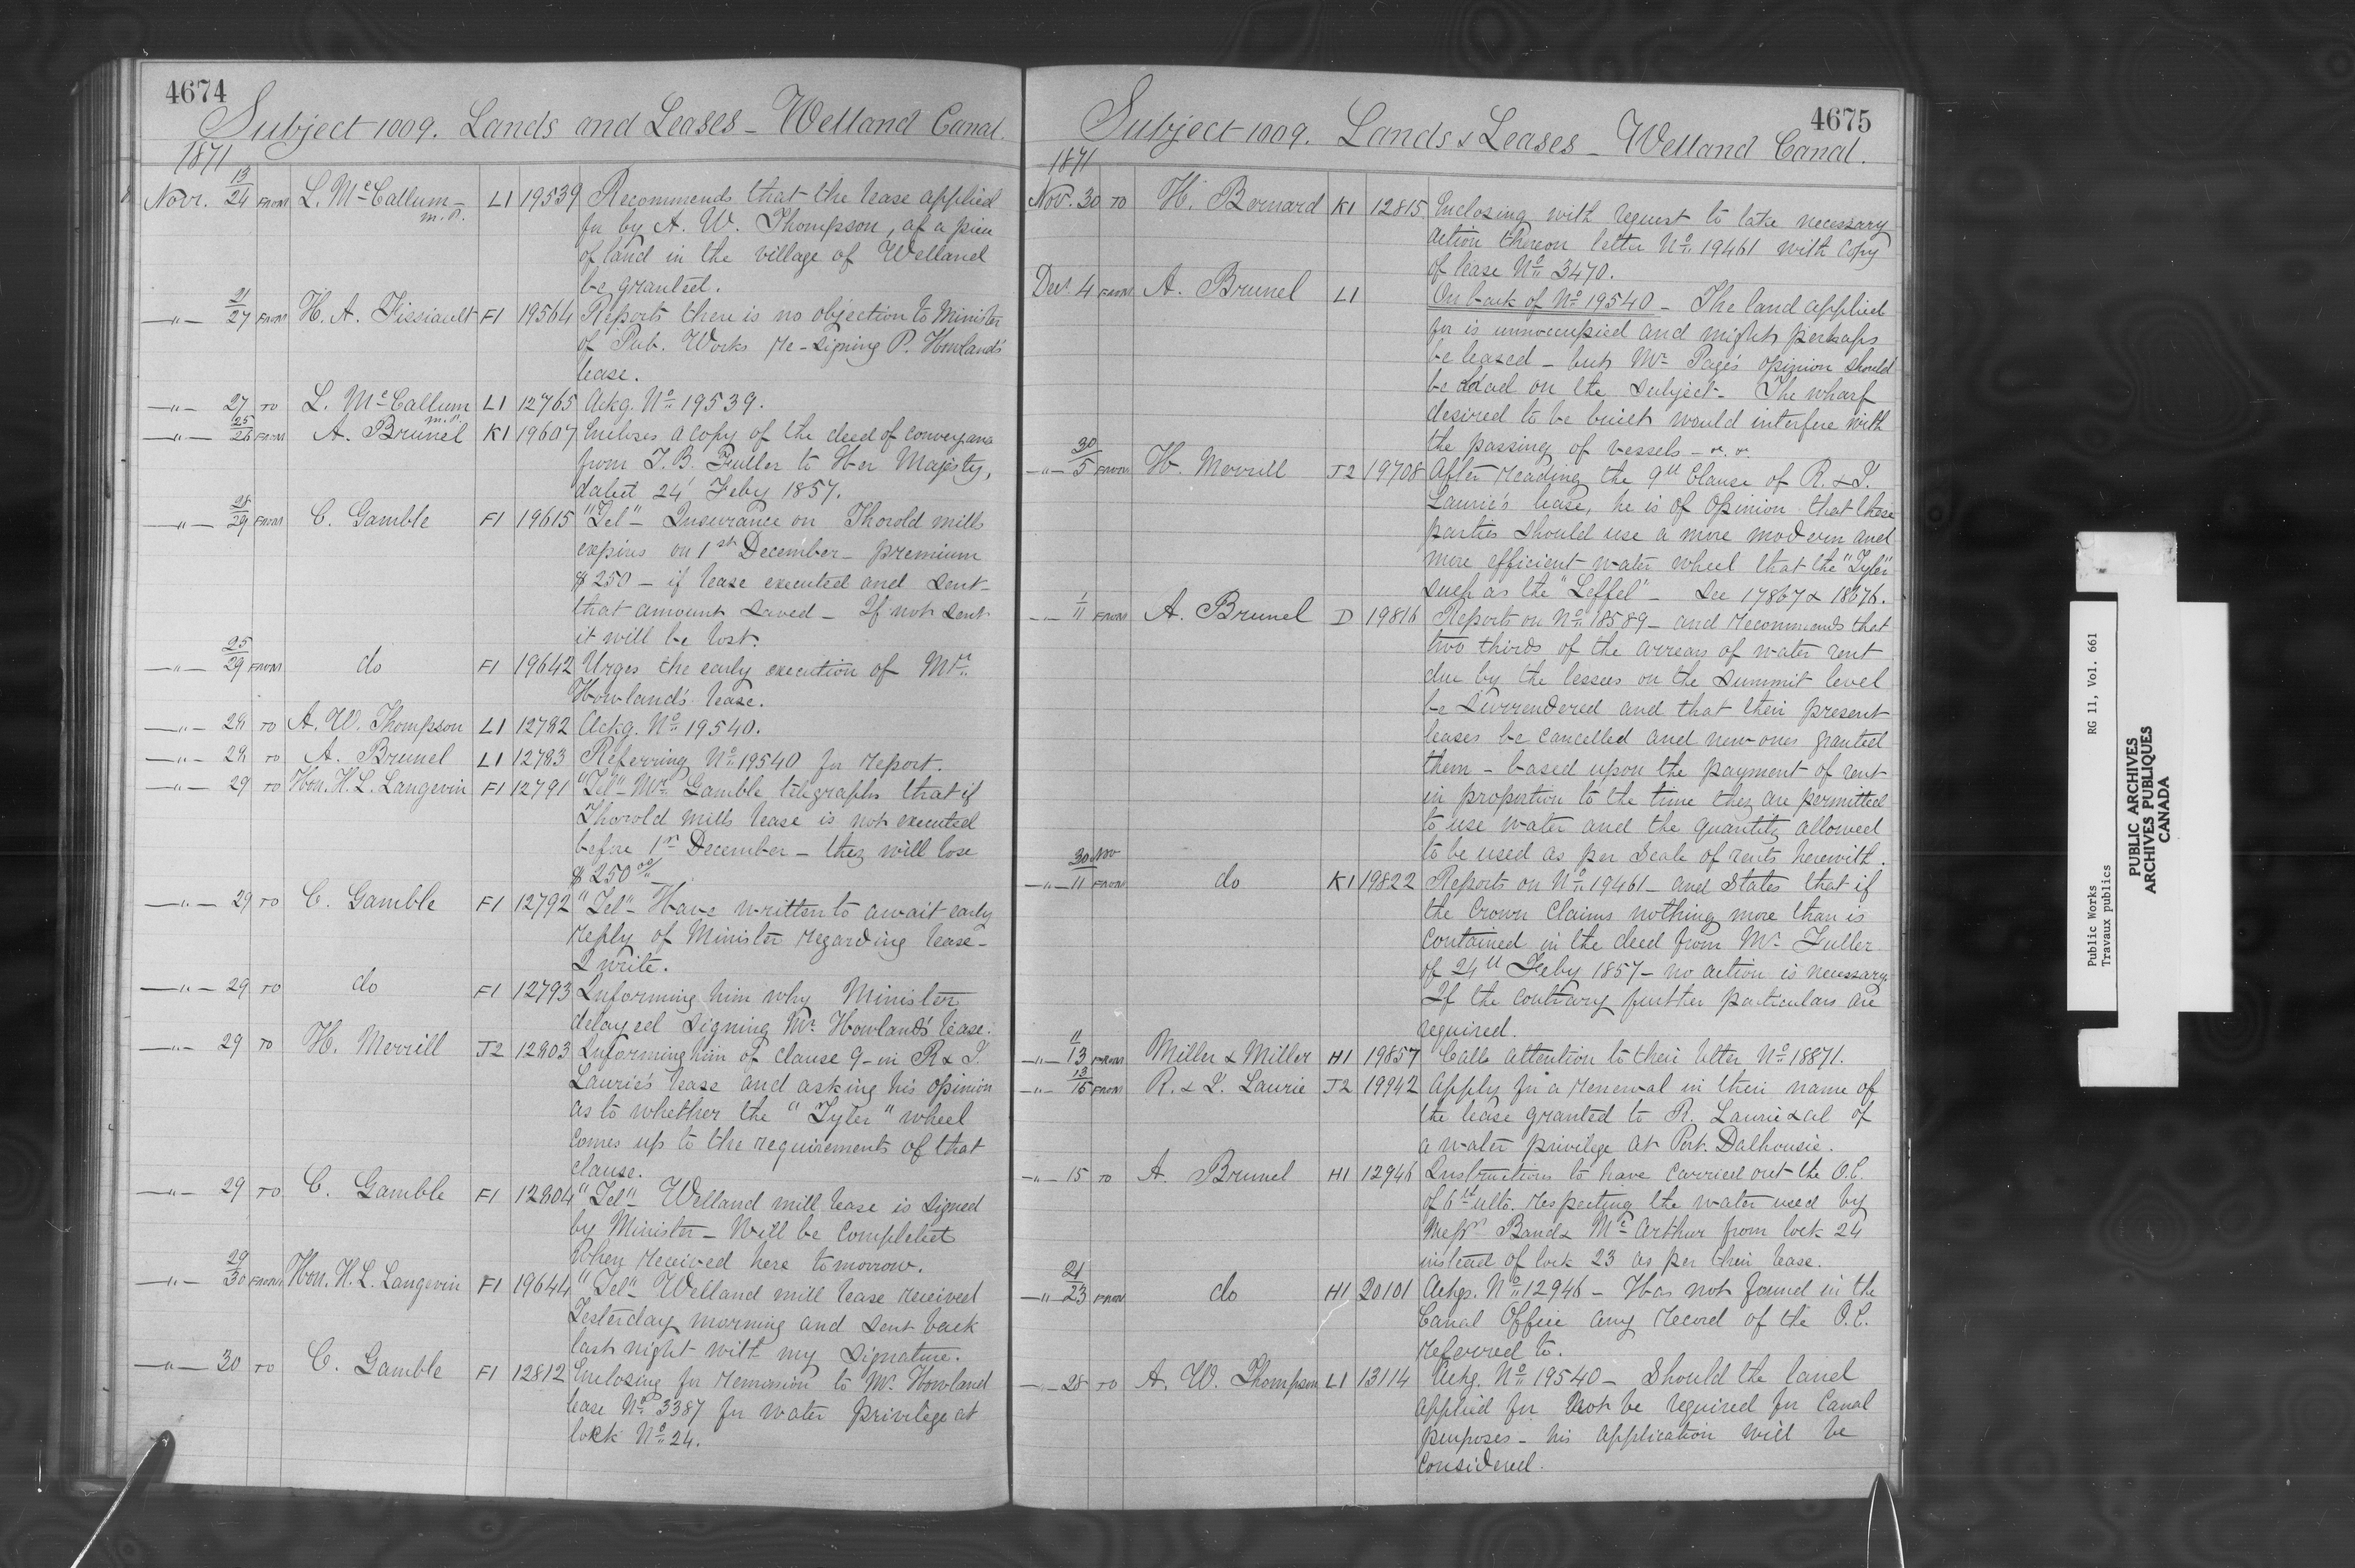 4674
Subject 1009. Lands and Leases - Welland Canal.
1871
Novr. 13/24 FROM L. McCallum M.P. L1 19539 Recommends that the lease applied
for by A. W. Thompson, of a piece
of land in the village of Welland
be granted.
-"- 21/27 FROM H. A. Fissiault F1 19564 Reports there is no objection to Minister
of Pub. Works re-signing P. Howland's
lease.
-"- 27 TO L. McCallum M.P. L1 12765 Ackg. No 19539.
-"- 25/28 FROM A. Brunel K1 19607 Encloses a copy of the deed of conveyance
from T. B. Fuller to Her Majesty,
dated 24' Feby 1857.
-"- 28/29 FROM C. Gamble F1 19615 "Tel"- Insurance on Thorold mills
expires on 1st December - premium
$250 - if lease executed and sent -
that amount saved - If not sent
it will be lost.
-"- 25/29 FROM do F1 19642 Urges the early execution of Mr.
Howland's lease.
-"- 28 TO A. W. Thompson L1 12782 Ackg. No 19540.
-"- 28 TO A. Brunel L1 12783 Referring No 19540 for report.
-"- 29 TO Hon. H. L. Langevin F1 12791 "Tel"- Mr. Gamble telegraphs that if
Thorold mills lease is not executed
before 1st December - they will lose
$250 00/
-"- 29 TO C. Gamble F1 12792 "Tel"- Have written to await early
reply of Minister regarding lease -
I write.
-"- 29 TO do F1 12793 Informing him why Minister
delayed signing Mr. Howland's lease.
-"- 29 TO H. Merrill J2 12803 Informing him of clause 9 - in R & T.
Laurie's lease and asking his opinion
as to whether the "Tyler" wheel
comes up to the requirements of that
clause.
-"- 29 TO C. Gamble F1 12804 "Tel"- Welland mill lease is signed
by Minister - Will be completed
when received here tomorrow.
-"- 29/30 FROM Hon. H. L. Langevin F1 19644 "Tel"- Welland mill lease received
Yesterday morning and sent back
last night with my signature.
-"- 30 TO C. Gamble F1 12812 Enclosing for remission to Mr. Howland
lease No 3387 for water privilege at
lock No 24.
4675
Subject 1009. Lands & Leases - Welland Canal.
1871
Nov. 30 TO H. Bernard K1 12815 Enclosing with request to take necessary
action thereon letter No 19461 with copy
of lease No 3470.
Decr. 4 FROM A. Brunel L1 On back of No 19540 - The land applied
for is unnoccupied and might perhaps
be leased - but Mr. Page's opinion should
be had on the subject - The wharf
desired to be built would interfere with
the passing of vessels - &. &.
-"- 30/5 FROM H. Merrill J2 19708 After reading the 9th Clause of R. & T.
Laurie's lease, he is of opinion that these
parties should use a more modern and
more efficient water wheel that the "Tyler"
such as the "Leffel" - See 17867 & 18676.
-"- 1/11 FROM A. Brunel D 19816 Reports on No 18589 - and recommends that
two thirds of the arrears of water rent
due by the lessees on the summit level
be surrendered and that their present
leases be cancelled and new ones granted
them - based upon the payment of rent
in proportion to the time they are permitted
to use water and the quantity allowed
to be used as per scale of rents herewith.
-"- 30 Nov/11 FROM do K1 19822 Reports on No 19461 - and states that if
the Crown claims nothing more than is
contained in the deed from Mr. Fuller
of 24th Feby 1857 - no action is necessary.
If the contrary further particulars are
required.
-"- 11/13 FROM Miller & Miller H1 19857 Calls attention to their letter No 18871.
-"- 13/15 FROM R. & T. Laurie J2 19942 Apply for a renewal in their name of
the lease granted to R. Laurie & al of
a water privilege at Port. Dalhousie.
-"- 15 TO A. Brunel H1 12946 Instructions to have carried out the O.C.
of 6th ulto. respecting the water used by
Messrs Band & McArthur from lock 24
instead of lock 23 as per their lease.
-"- 21/23 FROM do H1 20101 Ackgs. No 12946 - Has not found in the
Canal Office any record of the O.C.
referred to.
-"- 28 TO A. W. Thompson L1 13114 Ackg. No 19540 - Should the land
applied for not be required for Canal
purposes - his application will be
considered.
Public Works RG 11, Vol. 661
Travaux publics
PUBLIC ARCHIVES
ARCHIVES PUBLIQUES
CANADA